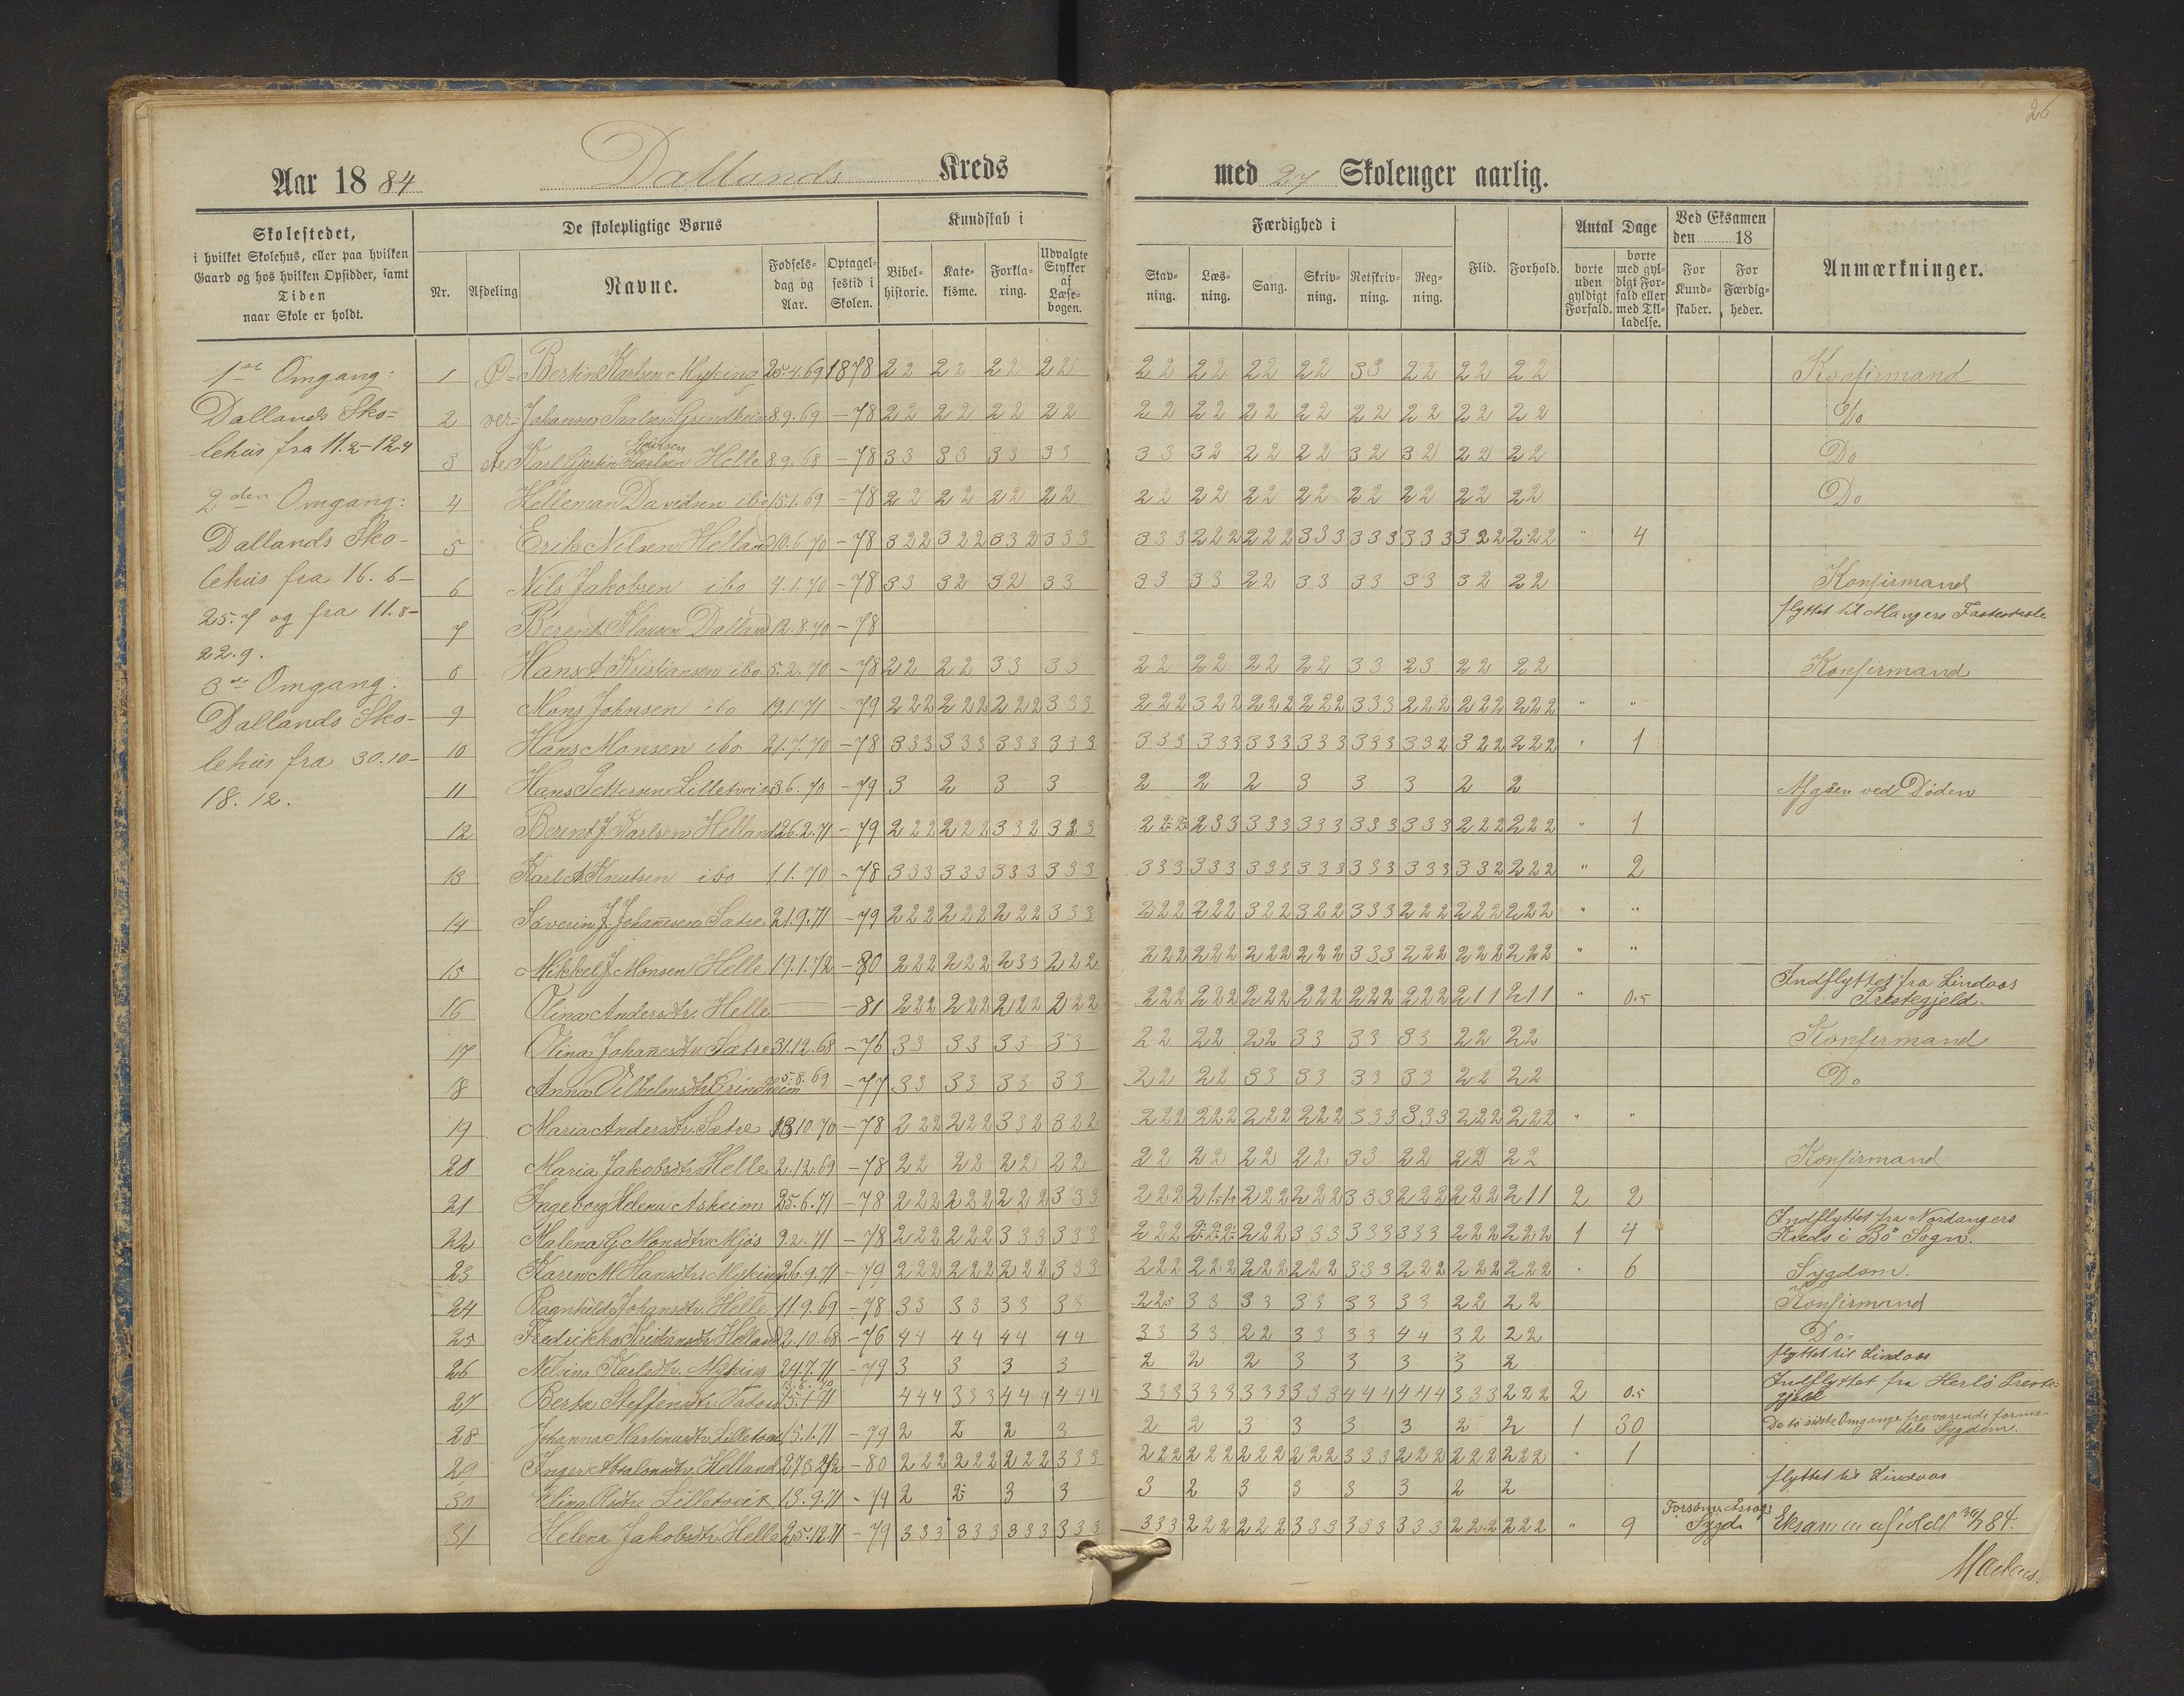 26
Aar 1884 Dallands Kreds med 27 Skoleuger aarlig.
Skolestedet, i hvilket Skolehus, eller paa hvilken Gaard og hos hvilken Opsidder, samt Tiden naar Skole er holdt.
De skolepligtige Børns
Nr. Afdeling Navne. Fødselsdag og Aar. Optagelsestid i Skolen.
Kundskab i
Bibelhistorie. Katekisme. Forklaring. Udvalgte Stykker af Læsebogen.
Færdighed i
Stavning. Læsning. Sang. Skrivning. Retskrivning. Regning. Flid. Forhold.
Antal Dage
borte uden gyldigt Forfald. borte med gyldigt Forfald eller med Tilladelse.
Ved Eksamen den 18
For Kundskaber. For Færdigheder.
Anmærkninger.
1ste Omgang:
Dallands Sko=
lehus fra 11.2-12.4
2den Omgang:
Dallands Sko-
lehus fra 16.6-
25.7 og fra 11.8-
22.9.
3die Omgang:
Dallands Sko-
lehus fra 30.10-
18.12.
1 Ø= Bertin Karlsen Myking 25.4.69 1878 22 22 22 22 22 22 22 22 33 22 22 22 Konfirmand
2 ver= Johannes Paulsen Grindheim 8.9.69 -78 22 22 22 22 22 22 22 22 22 22 22 22 Do
3 ste Karl Gjertin Helle 8.9.68 -78 33 33 33 33 33 32 22 22 32 32 22 22 Do
4 Helleman Davidsen ibo 15.1.69 -78 22 22 22 22 22 22 22 22 22 22 22 22 Do
5 Erik Nilsen Helland 10.6.70 -78 322 322 332 333 333 222 222 333 333 333 322 222 " 4
6 Nils Jakobsen ibo 4.1.70 -78 33 32 32 33 33 33 22 33 33 33 32 22 Konfirmand
7 Berent Klausen Dalland 12.8.70 -78 flyttet til Mangers Fasteskole
8 Hans A Kristiansen ibo 5.2.70 -78 22 22 33 33 22 22 22 22 33 23 22 22 Konfirmand
9 Mons Johnsen ibo 19.1.71 -79 222 222 222 333 222 322 222 222 333 222 222 222 " "
10 Hans Monsen ibo 21.7.70 -78 333 333 333 333 333 333 333 333 333 332 322 222 " 1
11 Hans Pettersen Lilletveit 3.6.70 -79 3 2 3 3 2 2 2 3 3 3 2 2 Afgåen ved Döden
12 Berent J. Karlsen Helland 26.2.71 -79 222 222 332 323 222 233 333 333 333 333 222 222 " 1
13 Karl A Knutsen ibo 1.1.70 -78 333 333 333 333 333 333 333 333 333 333 332 222 " 2
14 Severin J. Johannesen Sætre 21.9.71 -79 222 222 222 333 222 222 322 322 333 222 222 222 " "
15 Mikkel J. Monsen Helle 19.1.72 -80 222 222 233 222 222 222 222 222 333 222 222 222 " "
16 Olina Andersdtr. Helle -81 222 222 222 222 222 222 222 222 222 222 211 211 " 0.5 Indflyttet fra Lindaas Prestegjeld.
17 Olina Johannesdtr. Sætre 31.12.68 -76 33 33 33 33 22 22 22 33 33 33 22 22 Konfirmand
18 Anna Vilhelmsdtr. Grindheim 5.8.69 -77 33 33 33 33 22 22 33 33 33 33 22 22 Do
19 Maria Andersdtr. Sætre 13.10.70 -78 222 222 332 322 222 222 222 222 333 333 222 222 " "
20 Maria Jakobsdtr. Helle 2.12.69 -78 22 22 22 22 22 22 22 22 33 22 22 22 Konfirmand
21 Ingeborg Helena Askeim 25.6.71 -78 222 222 222 333 222 211 222 222 333 222 222 211 2 2
22 Malena G. Monsdtr. Mjös 9.2.71 -78 222 222 333 333 222 222 222 333 333 333 222 222 1 4 Indflyttet fra Nordangers Kreds i Bö Sogn.
23 Karen M. Hansdtr. Myking 26.9.71 -79 222 222 222 333 222 222 222 222 333 222 222 222 " 6 Sygdom.
24 Ragnhild Johansdtr. Helle 11.9.69 -78 33 33 33 33 22 33 33 33 33 33 22 22 Konfirmand
25 Fredrikka Kristiansdtr. Helland 2.10.68 -76 44 44 44 44 33 33 22 33 33 44 32 22 Do
26 Nilsina Karlsdtr. Myking 24.7.71 -79 3 3 3 3 2 2 2 3 3 3 3 2 flyttet til Lindaas
27 Berta Steffensdtr. 444 333 444 444 333 333 333 333 444 444 333 222 2 0.5 Indflyttet fra Herlö Prestegjeld
28 Johanna Martinusdtr. Lilletveit 15.1.71 -79 2 2 2 3 2 2 3 3 3 3 2 2 1 30 De to sidste Omgange fraværende formedels Sygdom.
29 Inger Absalonsdtr. Helland -80 222 222 222 333 222 222 222 222 333 222 222 222 " 1
30 Elina Lilletveit 13.9.71 -79 2 2 3 3 3 2 3 3 3 3 2 2 flyttet til Lindaas
31 Helena Jakobsdtr. Helle 25.12.71 -79 333 333 333 333 333 222 222 333 333 333 222 222 " 9 Eksamen afholdt 84.